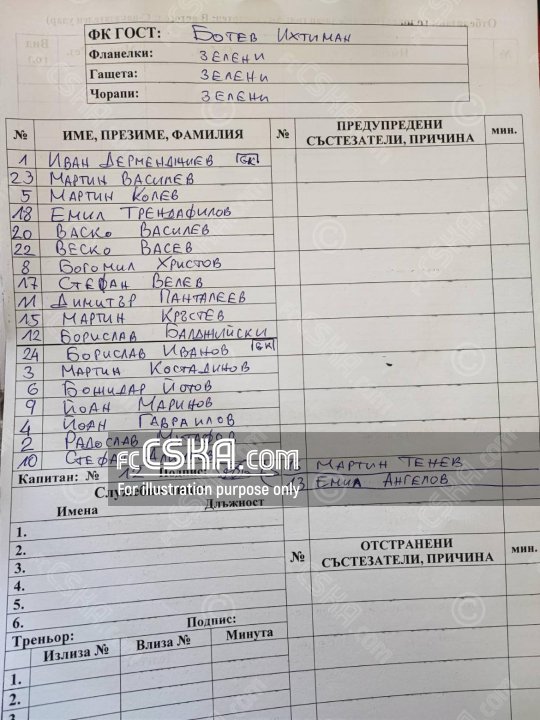 ФК ГОСТ: БОТЕВ ИХТИМАН
Фланелки: ЗЕЛЕНИ
Гащета: ЗЕЛЕНИ
Чорапи: ЗЕЛЕНИ
№ ИМЕ, ПРЕЗИМЕ, ФАМИЛИЯ № ПРЕДУПРЕДЕНИ СЪСТЕЗАТЕЛИ, ПРИЧИНА мин.
1 ИВАН ДЕРМЕНДЖИЕВ GK
23 МАРТИН ВАСИЛЕВ
5 МАРТИН КОЛЕВ
18 ЕМИЛ ТРЕНДАФИЛОВ
20 ВАСКО ВАСИЛЕВ
22 ВЕСКО ВАСЕВ
8 БОГОМИЛ ХРИСТОВ
17 СТЕФАН ВЕЛЕВ
11 ДИМИТЪР ПАНТАЛЕЕВ
15 МАРТИН КРЪСТЕВ
12 БОРИСЛАВ БАЛДЖИЙСКИ
24 БОРИСЛАВ ИВАНОВ GK
3 МАРТИН КОСТАДИНОВ
6 БОЖИДАР ЙОТОВ
9 ЙОАН МАРИНОВ
4 ЙОАН ГАВРАИЛОВ
2 РАДОСЛАВ
10
МАРТИН ТЕНЕВ
Капитан: № 12 Подпис:
13 ЕМИЛ АНГЕЛОВ
fcCSKA.com
For illustration purpose only
Имена Длъжност
1.
2.
3.
4.
5.
6.
№ ОТСТРАНЕНИ СЪСТЕЗАТЕЛИ, ПРИЧИНА мин.
Треньор: Подпис:
Излиза № Влиза № Минута
1.
2.
3.